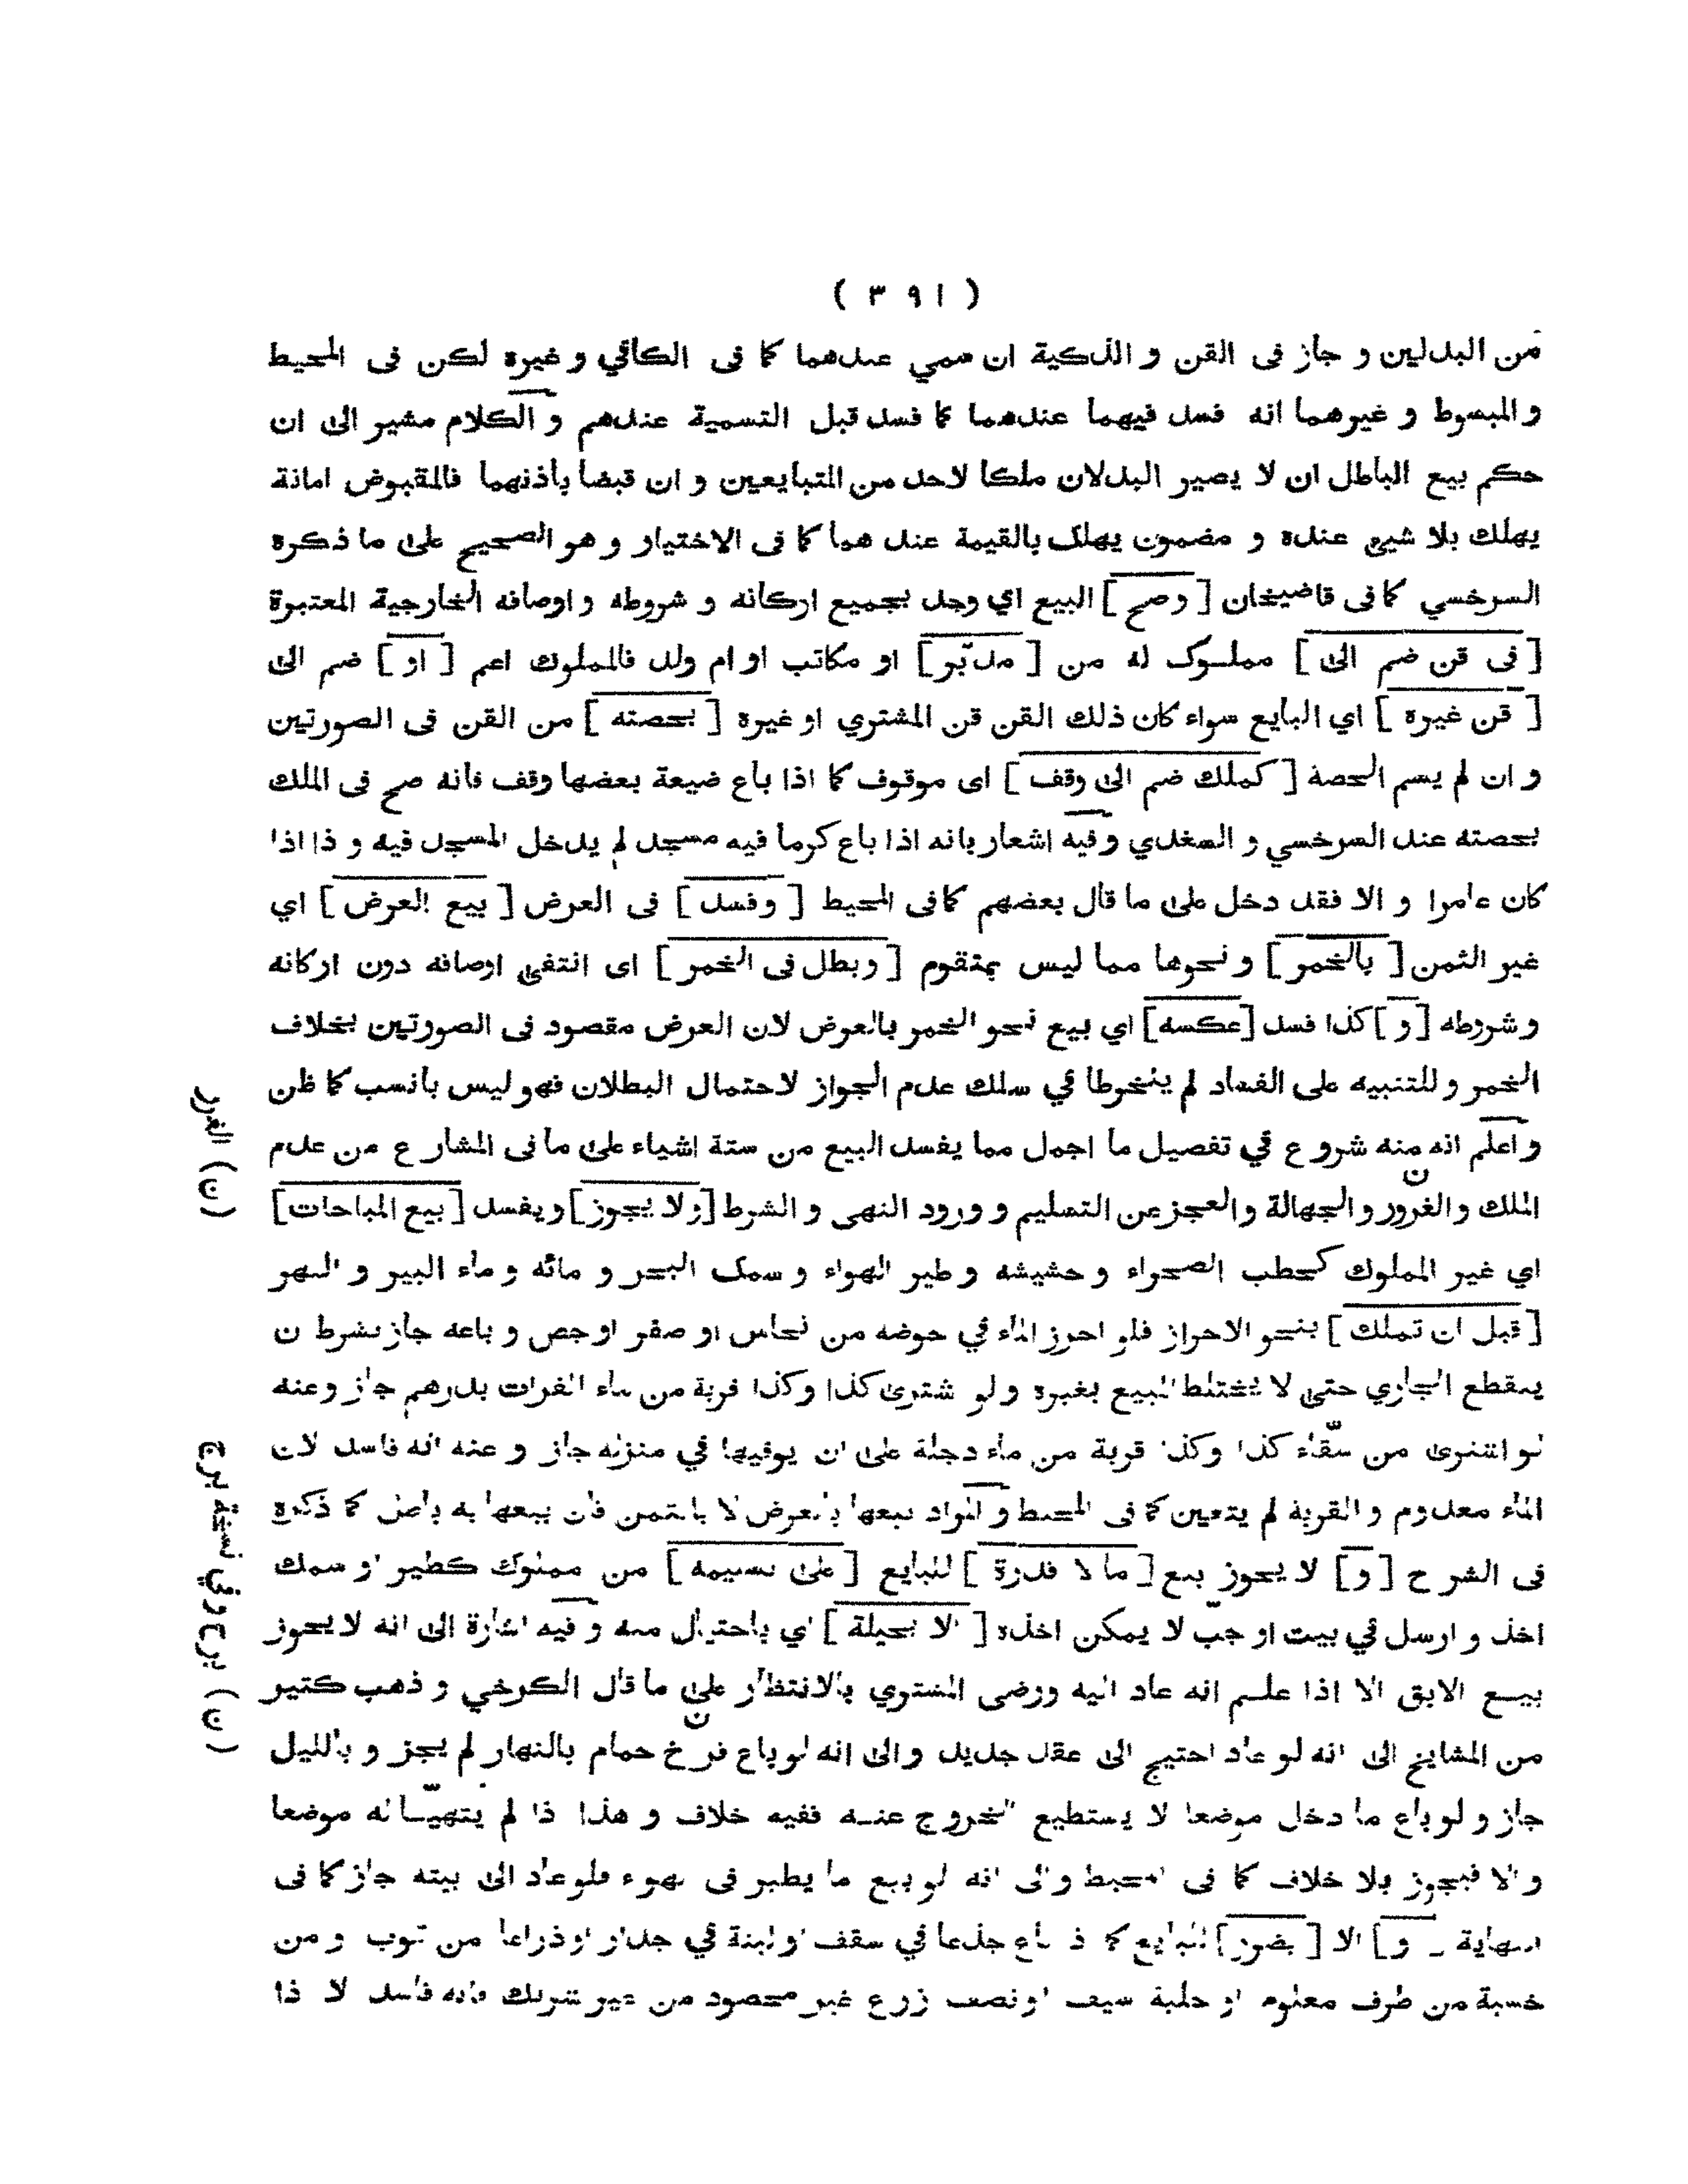 ( ٣٩١ )
من البدلين و جاز فى القن و الذكية ان سمي عندهما كما فى الكافي و غيره لكن فى المحيط
و المبسوط و غيرهما انه فسد فيهما عندهما كما فسد قبل التسمية عندهم و الكلام مشير الى ان
حكم بيع الباطل ان لا يصير البدلان ملكا لاحد من المتبايعين و ان قبضا باذنهما فالمقبوض امانة
يهلك بلا شيئ عنده و مضمون يهلك بالقيمة عند هما كما فى الاختيار و هو الصحيح على ما ذكره
السرخسي كما فى قاضيخان [ وصح ] البيع اي وجد بجميع اركانه و شروطه و اوصافه الخارجية المعتبرة
[ فى قن ضم الى ] مملوك له من [ مدبّر ] او مكاتب او ام ولد فالمملوك اعم [ او ] ضم الى
[ قن غيره ] اي البايع سواء كان ذلك القن قن المشتري او غيره [ بحصته ] من القن فى الصورتين
و ان لم يسم الحصة [ كملك ضم الى وقف ] اى موقوف كما اذا باع ضيعة بعضها وقف فانه صح فى الملك
بحصته عند السرخسي و السغدي و فيه اشعار بانه اذا باع كرما فيه مسجد لم يدخل المسجد فيه و ذا اذا
كان عامرا و الا فقد دخل على ما قال بعضهم كما فى المحيط [ و فسد ] فى العرض [ بيع العرض ] اي
غير الثمن [ بالخمر ] و نحوها مما ليس بمتقوم [ و بطل فى الخمر ] اى انتفى اوصافه دون اركانه
و شروطه [ و ] كذا فسد [ عكسه ] اي بيع نحو الخمر بالعرض لان العرض مقصود فى الصورتين بخلاف
الخمر و للتنبيه على الفساد لم ينخرطا في سلك عدم الجواز لاحتمال البطلان فهو ليس بانسب كما ظن
و اعلم انه منه شروع في تفصيل ما اجمل مما يفسد البيع من ستة اشياء على ما فى المشارع من عدم
الملك و الغرور ن و الجهالة و العجز عن التسليم و ورود النهى و الشرط [ ولا يجوز ] و يفسد [ بيع المباحات ]
اي غير المملوك كحطب الصحراء و حشيشه و طير الهواء و سمك البحر و مائه و ماء البير و النهر
[ قبل ان تملك ] بنحو الاحراز فلو احرز الماء في حوضه من نحاس او صفر او جص و باعه جاز بشرط ن
ينقطع الجاري حتى لا يختلط المبيع بغيره و لو شترى كذا و كذا قربة من ماء الفرات بدرهم جاز و عنه
لو اشترى من سقّاء كذا وكذا قربة من ماء دجلة على ان يوفيها في منزله جاز و عنه انه فاسد لان
الماء معدوم و القربة لم يتعين كما فى المحيط و المراد بيعها بالعرض لا بالثمن فان بيعها به باطل كما ذكره
فى الشرح [ و ] لا يجوز بيع [ ما لا قدرة ] للبايع [ على تسليمه ] من مملوك كطير او سمك
اخذ و ارسل في بيت او جب لا يمكن اخذه [ الا بحيلة ] اي باحتيال منه و فيه اشارة الى انه لا يجوز
بيع الابق الا اذا علم انه عاد اليه ورضى المشتري بالانتظار على ما قال الكرخي و ذهب كثير
من المشايخ الى انه لو عاد احتيج الى عقد جديد و الى انه لو باع ن فرخ حمام بالنهار لم يجز و بالليل
جاز و لو باع ما دخل موضعا لا يستطيع الخروج عنه ففيه خلاف و هذا ذا لم يتهيّا له موضعا
و الا فيجوز بلا خلاف كما فى المحيط و الى انه لو بيع ما يطير فى الهوء فلو عاد الى بيته جاز كما فى
النهاية [ و ] الا [ بضرر ] للبايع كما ذ باع جذعا في سقف او لبنة في جدار او ذراعا من ثوب و من
خشبة من طرف معلوم او حلية سيف او نصف زرع غير محصود من غير شريك فانه فاسد لا ذا
( ن ) الغرر
( ن ) برج وفي نسخة برج